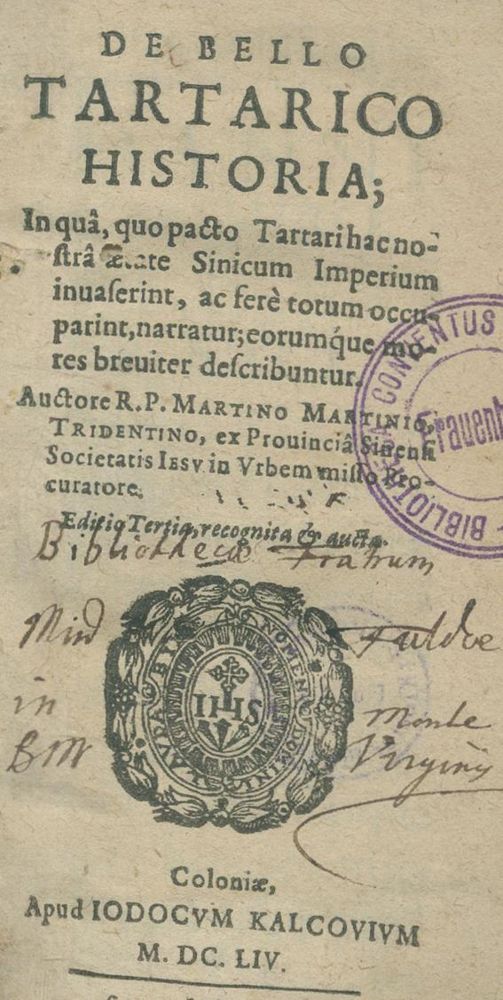 DE BELLO
TARTARICO
HISTORIA;
In quâ, quo pacto Tartari hac no-
strâ ætate Sinicum Imperium
inuaserint, ac ferè totum occu-
parint, narratur; eorumq́ue mo-
res breuiter describuntur.
Auctore R.P. MARTINO MARTINIO,
TRIDENTINO, ex Prouinciâ Sinensi
Societatis IESV in Vrbem misso Pro-
curatore.
Editio Tertia, recognita & aucta.
Bibliothecæ Fratrum
Min Fuldæ
in Monte
BM Virginis
LAVDABILE NOMEN DOMINI
IHS
BIBLIOTH CONVENTUS
Frauenb
Coloniæ,
Apud IODOCVM KALCOVIVM
M. DC. LIV.